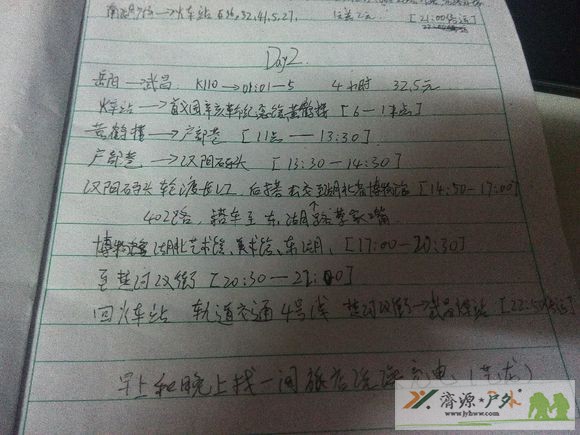 南湖广场→火车站 [21:00
Day2.
岳阳—武昌 K110→01:01-5 4小时 32.5元
火车站→首义园辛亥革命纪念馆黄鹤楼 [6-11点]
黄鹤楼→户部巷 [11点—13:30]
户部巷→汉阳码头 [13:30-14:30]
汉阳码头 轮渡长江 后搭 公交至湖北省博物馆 [14:30-17:00]
402路, 搭车至东湖路
博物馆 湖北艺术馆、美术馆、东湖, [17:00-20:30]
至楚河汉街 [20:30-21:00]
回火车站 轨道交通4号线 楚河汉街→武昌火车站
早上和晚上找一间旅店洗澡充电。
济源·户外
www.jyhww.com